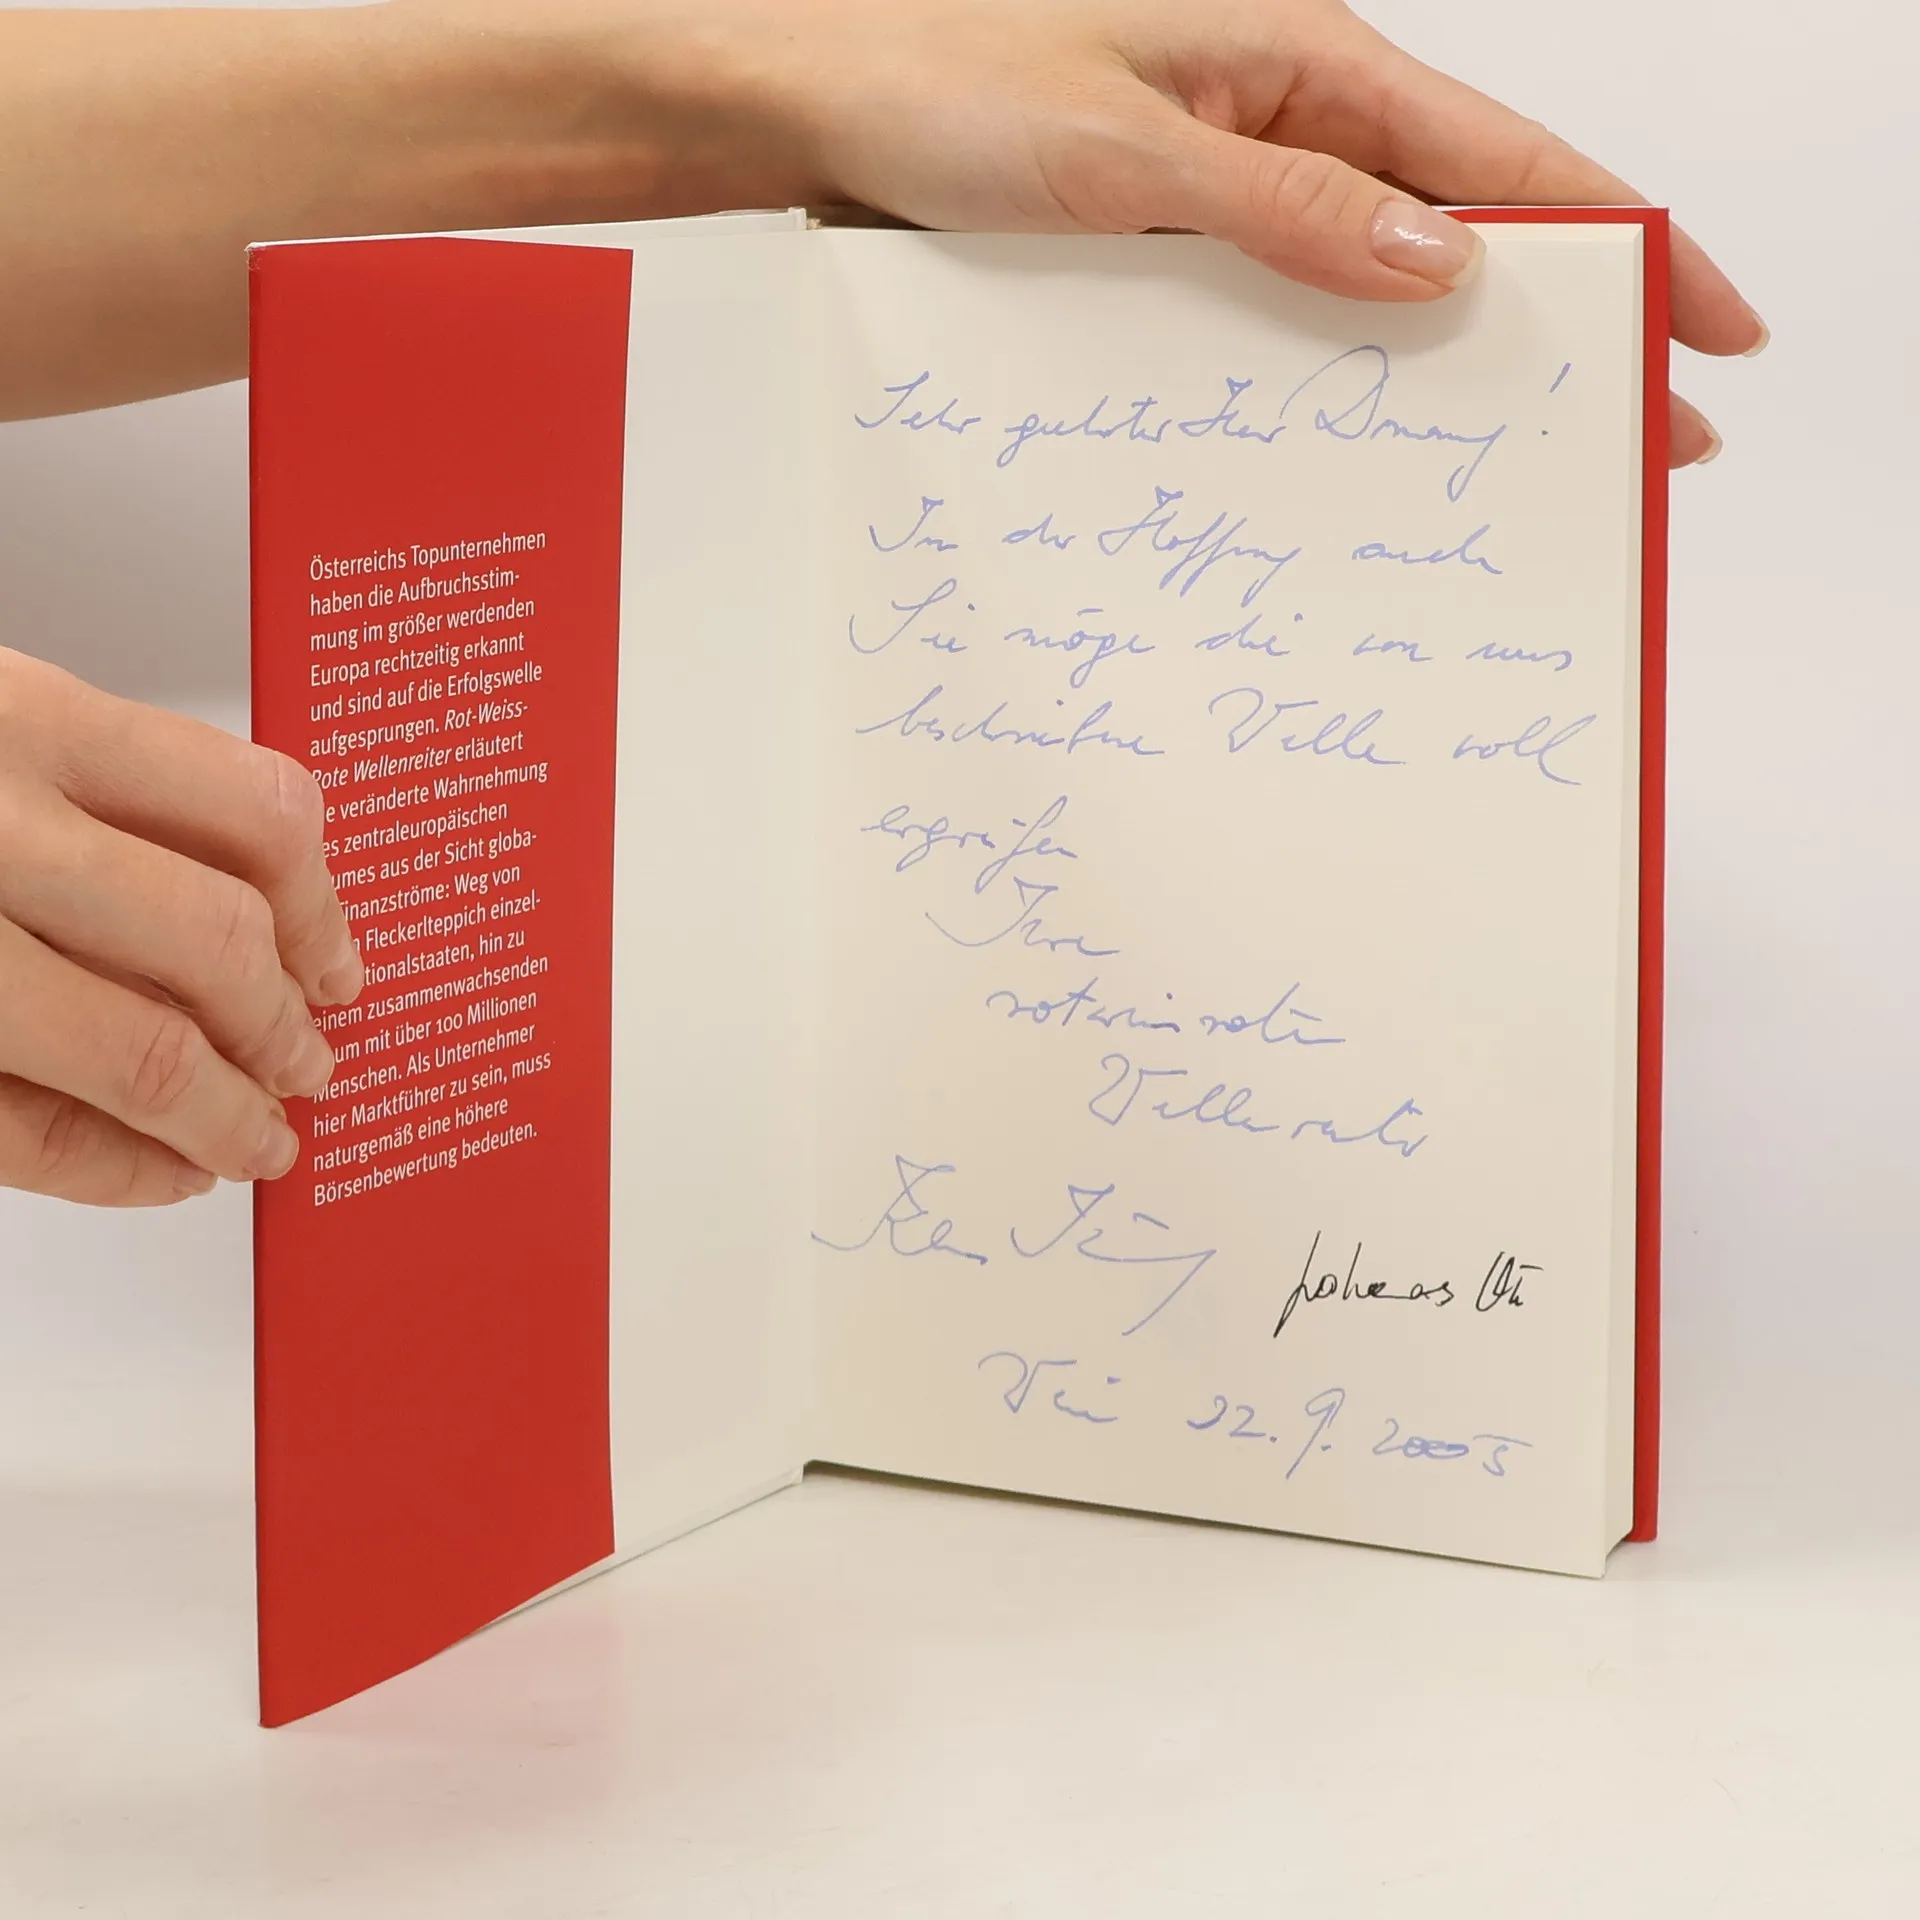 Österreichs Topunternehmen
haben die Aufbruchsstim-
mung im größer werdenden
Europa rechtzeitig erkannt
und sind auf die Erfolgswelle
aufgesprungen. Rot-Weiss-
Rote Wellenreiter erläutert
e veränderte Wahrnehmung
es zentraleuropäischen
umes aus der Sicht globa-
inanzströme: Weg von
n Fleckerlteppich einzel-
tionalstaaten, hin zu
einem zusammenwachsenden
um mit über 100 Millionen
Menschen. Als Unternehmer
hier Marktführer zu sein, muss
naturgemäß eine höhere
Börsenbewertung bedeuten.
Sehr geehrter Herr !
In der Hoffnung auch
Sie möge die von uns
beschriebene Welle voll
ergreifen
Ihre
rotweissroten
Wellenreiter
Johannes
Wien 22.9.2005